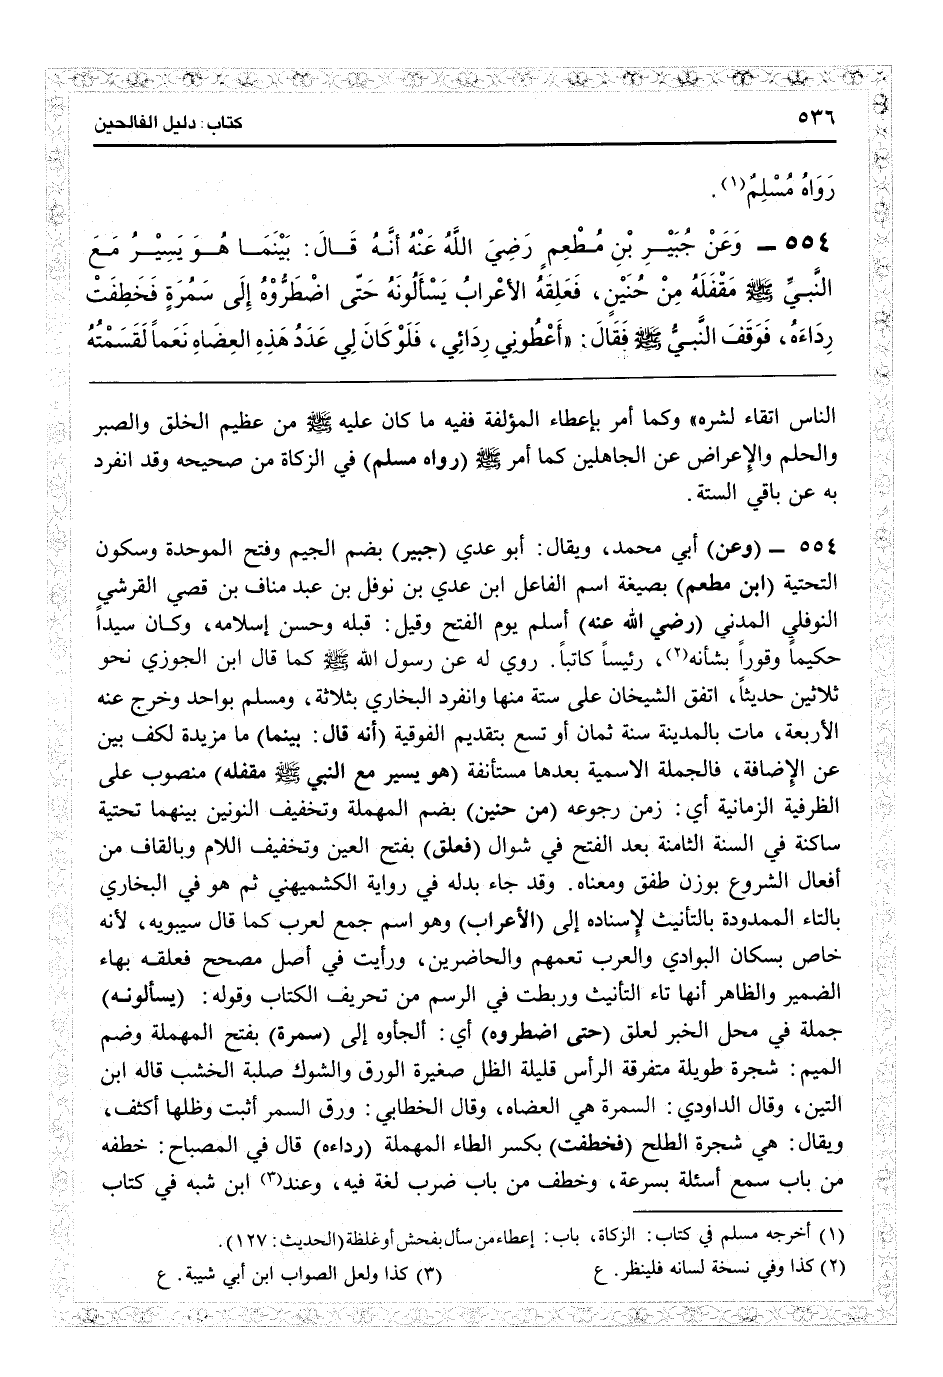 ٥٣٦
كتاب: دليل الفالحين
رَوَاهُ مُسْلِمٌ(١) .
٥٥٤ ـ وَعَنْ جُبَيْرِ بْنِ مُطْعِمٍ رَضِيَ اللَّهُ عَنْهُ أَنَّهُ قَالَ: بَيْنَمَا هُوَ يَسِيْرُ مَعَ
النَّبِيِّ ﷺ مَقْفَلَهُ مِنْ حُنَيْنٍ، فَعَلِقَهُ الأعْرابُ يَسْأَلُونَهُ حَتَّى اضْطَرُّوْهُ إِلَى سَمُرَةٍ فَخَطِفَتْ
رِدَاءَهُ، فَوَقَفَ النَّبيُّ ﷺ فَقَالَ: «أَعْطُوني رِدَائِي، فَلَوْ كَانَ لِي عَدَدُ هَذِهِ العِضَاهِ نَعَماً لَقَسَمْتُهُ
الناس اتقاء لشره» وكما أمر بإعطاء المؤلفة ففيه ما كان عليه ﷺ من عظيم الخلق والصبر
والحلم والإعراض عن الجاهلين كما أمر ﷺ (رواه مسلم) في الزكاة من صحيحه وقد انفرد
به عن باقي الستة.
٥٥٤ ـ (وعن) أبي محمد، ويقال: أبو عدي (جبير) بضم الجيم وفتح الموحدة وسكون
التحتية (ابن مطعم) بصيغة اسم الفاعل ابن عدي بن نوفل بن عبد مناف بن قصي القرشي
النوفلي المدني (رضي الله عنه) أسلم يوم الفتح وقيل: قبله وحسن إسلامه، وكان سيداً
حكيماً وقوراً بشأنه(٢)، رئيساً كاتباً. روي له عن رسول الله ﷺ كما قال ابن الجوزي نحو
ثلاثين حديثاً، اتفق الشيخان على ستة منها وانفرد البخاري بثلاثة، ومسلم بواحد وخرج عنه
الأربعة، مات بالمدينة سنة ثمان أو تسع بتقديم الفوقية (أنه قال: بينما) ما مزيدة لكف بين
عن الإضافة، فالجملة الاسمية بعدها مستأنفة (هو يسير مع النبي ﷺ مقفله) منصوب على
الظرفية الزمانية أي: زمن رجوعه (من حنين) بضم المهملة وتخفيف النونين بينهما تحتية
ساكنة في السنة الثامنة بعد الفتح في شوال (فعلق) بفتح العين وتخفيف اللام وبالقاف من
أفعال الشروع بوزن طفق ومعناه. وقد جاء بدله في رواية الكشميهني ثم هو في البخاري
بالتاء الممدودة بالتأنيث لإسناده إلى (الأعراب) وهو اسم جمع لعرب كما قال سيبويه، لأنه
خاص بسكان البوادي والعرب تعمهم والحاضرين، ورأيت في أصل مصحح فعلقه بهاء
الضمير والظاهر أنها تاء التأنيث وربطت في الرسم من تحريف الكتاب وقوله: (يسألونه)
جملة في محل الخبر لعلق (حتى اضطروه) أي: ألجأوه إلى (سمرة) بفتح المهملة وضم
الميم: شجرة طويلة متفرقة الرأس قليلة الظل صغيرة الورق والشوك صلبة الخشب قاله ابن
التين، وقال الداودي: السمرة هي العضاه، وقال الخطابي: ورق السمر أثبت وظلها أكثف،
ويقال: هي شجرة الطلح (فخطفت) بكسر الطاء المهملة (رداءه) قال في المصباح: خطفه
من باب سمع أسئلة بسرعة، وخطف من باب ضرب لغة فيه، وعند(٣) ابن شبه في كتاب
(١) أخرجه مسلم في كتاب: الزكاة، باب: إعطاء من سأل بفحش أو غلظة (الحديث: ١٢٧).
(٢) كذا وفي نسخة لسانه فلينظر. ع
(٣) كذا ولعل الصواب ابن أبي شيبة. ع